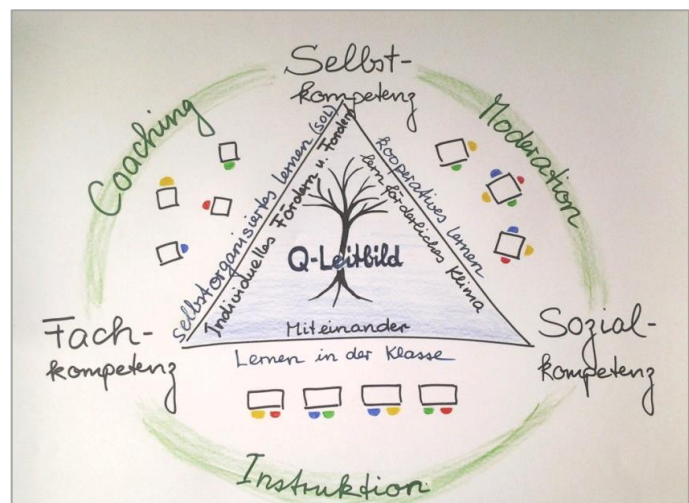 Selbst-
kompetenz
Coaching
Moderation
Selbstorganisiertes Lernen (SOL)
Individuelles Fördern u. Fordern
kooperatives Lernen
lernförderliches Klima
Q-Leitbild
Miteinander
Lernen in der Klasse
Fach-
kompetenz
Sozial-
kompetenz
Instruktion